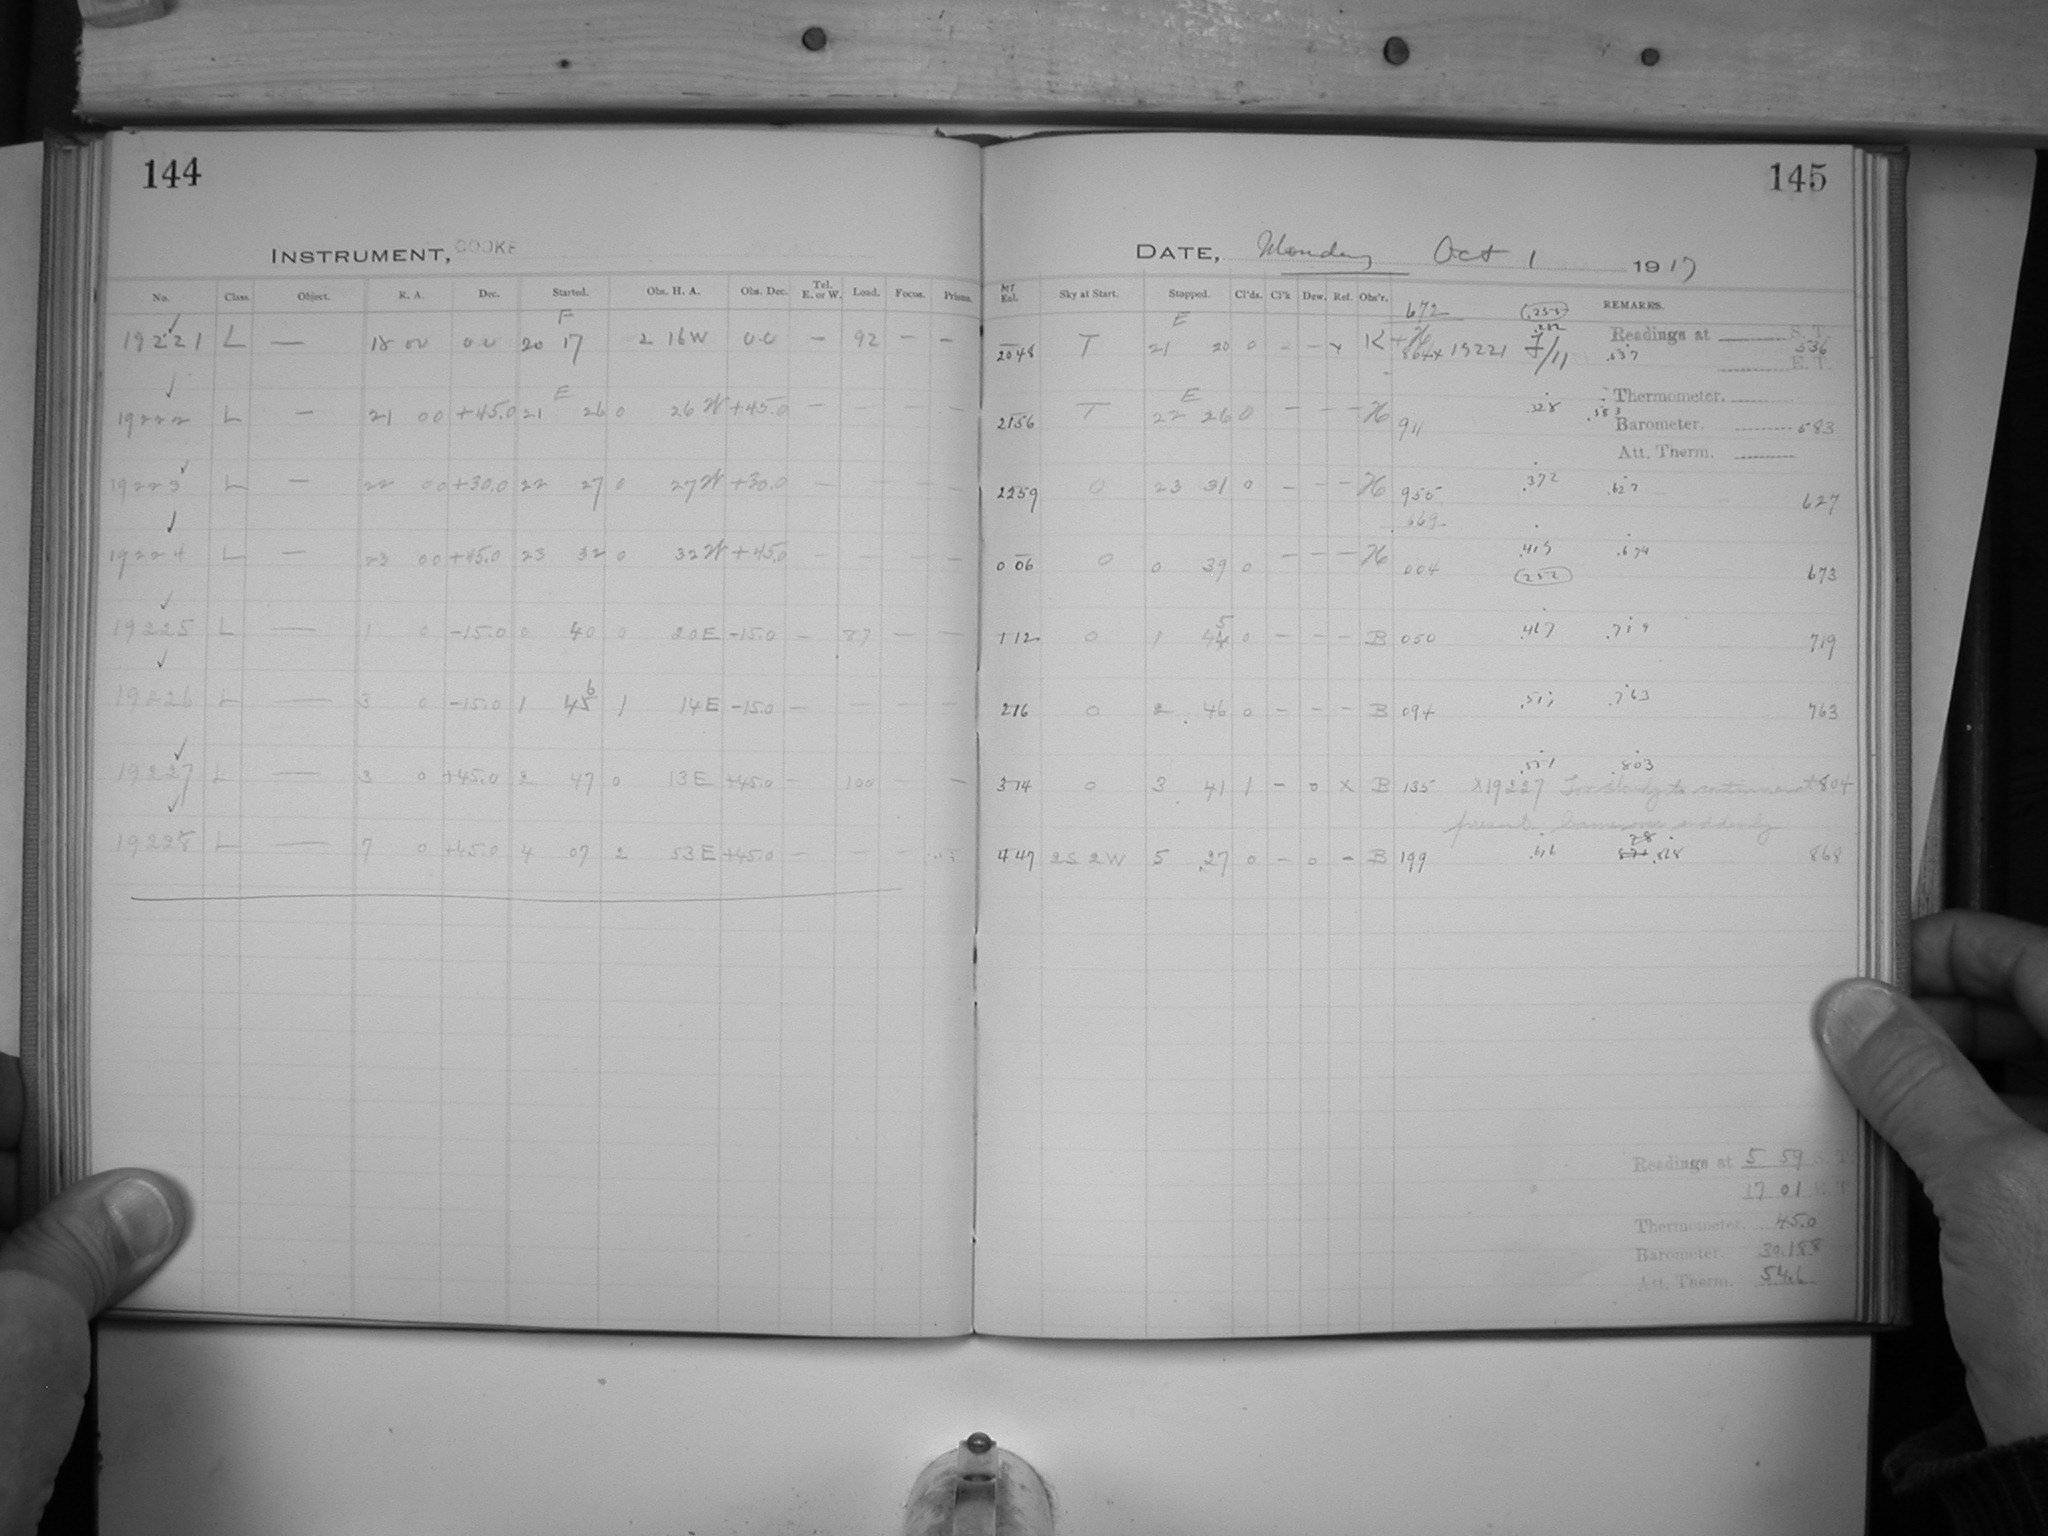 144
INSTRUMENT, COOKE
No. Class. Object. R. A. Dec. Started. Obs. H. A. Obs. Dec. Tel. E. or W. Load. Focus. Prisms.
19221 L — 18 00 00 20 17 2 16W 00 — 92 — —
19222 L — 21 00 +45.0 21 26 0 26 W +45.0 — — — —
19223 L — 22 00 +30.0 22 27 0 27 W +30.0 — — — —
19224 L — 23 00 +45.0 23 32 0 32 W +45.0 — — — —
19225 L — 1 0 -15.0 0 40 0 20E -15.0 — 87 — —
19226 L — 3 0 -15.0 1 46 1 14E -15.0 — — — —
19227 L — 3 0 +45.0 2 47 0 13E +45.0 — 100 —
19228 L — 7 0 +45.0 4 07 2 53E +45.0 — — —
145
DATE, Monday Oct 1 1917
MT Sky at Start. Stopped. Cl'ds. Cl'k Dew. Ref. Obs'r. REMARKS.
672
2048 T E 21 20 0 - - x K + H 864 x 19221 .537 536
Readings at S. T.
E. T.
2156 T E 22 26 0 - - - H 911 .328 .583 583
Thermometer.
Barometer.
Att. Therm.
2259 0 23 31 0 - - - H 955 .372 .627 627
669
006 0 0 39 0 - - - H 004 .419 .674 673
(252)
112 0 1 45 0 - - - B 050 .467 .719 719
216 0 2 46 0 - - - B 094 .511 .763 763
.551 .803
314 0 3 41 1 - 0 x B 135 x19227 Too cloudy to continue at 804
present. Came over suddenly
447 2S 2W 5 27 0 - 0 - B 199 .868 868
Readings at 5 59 S. T.
17 01 E. T.
Thermometer. 45.0
Barometer. 30.188
Att. Therm. 54.6